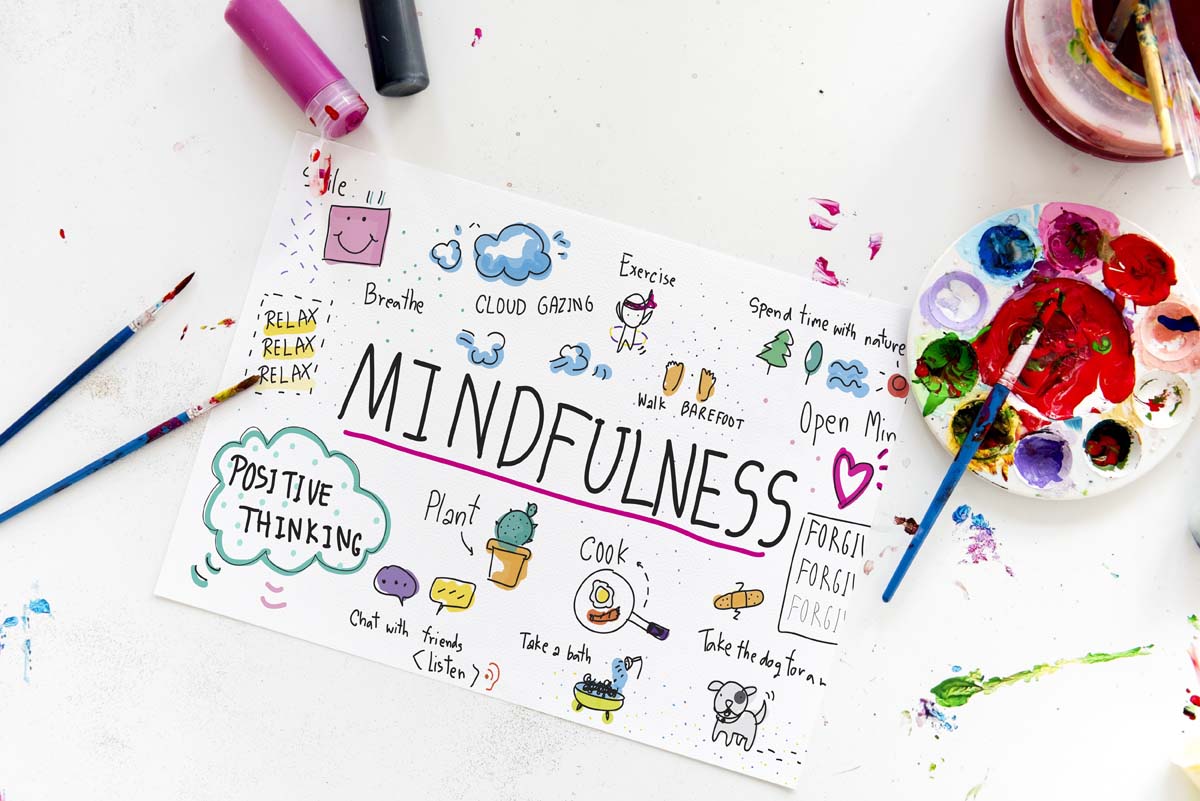 Breathe
CLOUD GAZING
Exercise
Spend time with nature
RELAX
RELAX
RELAX
WALK BAREFOOT
Open Min
MINDFULNESS
POSITIVE
THINKING
Plant
COOK
FORGIV
FORGIV
FORGIV
Chat with friends
<listen>
Take a bath
Take the dog for a w